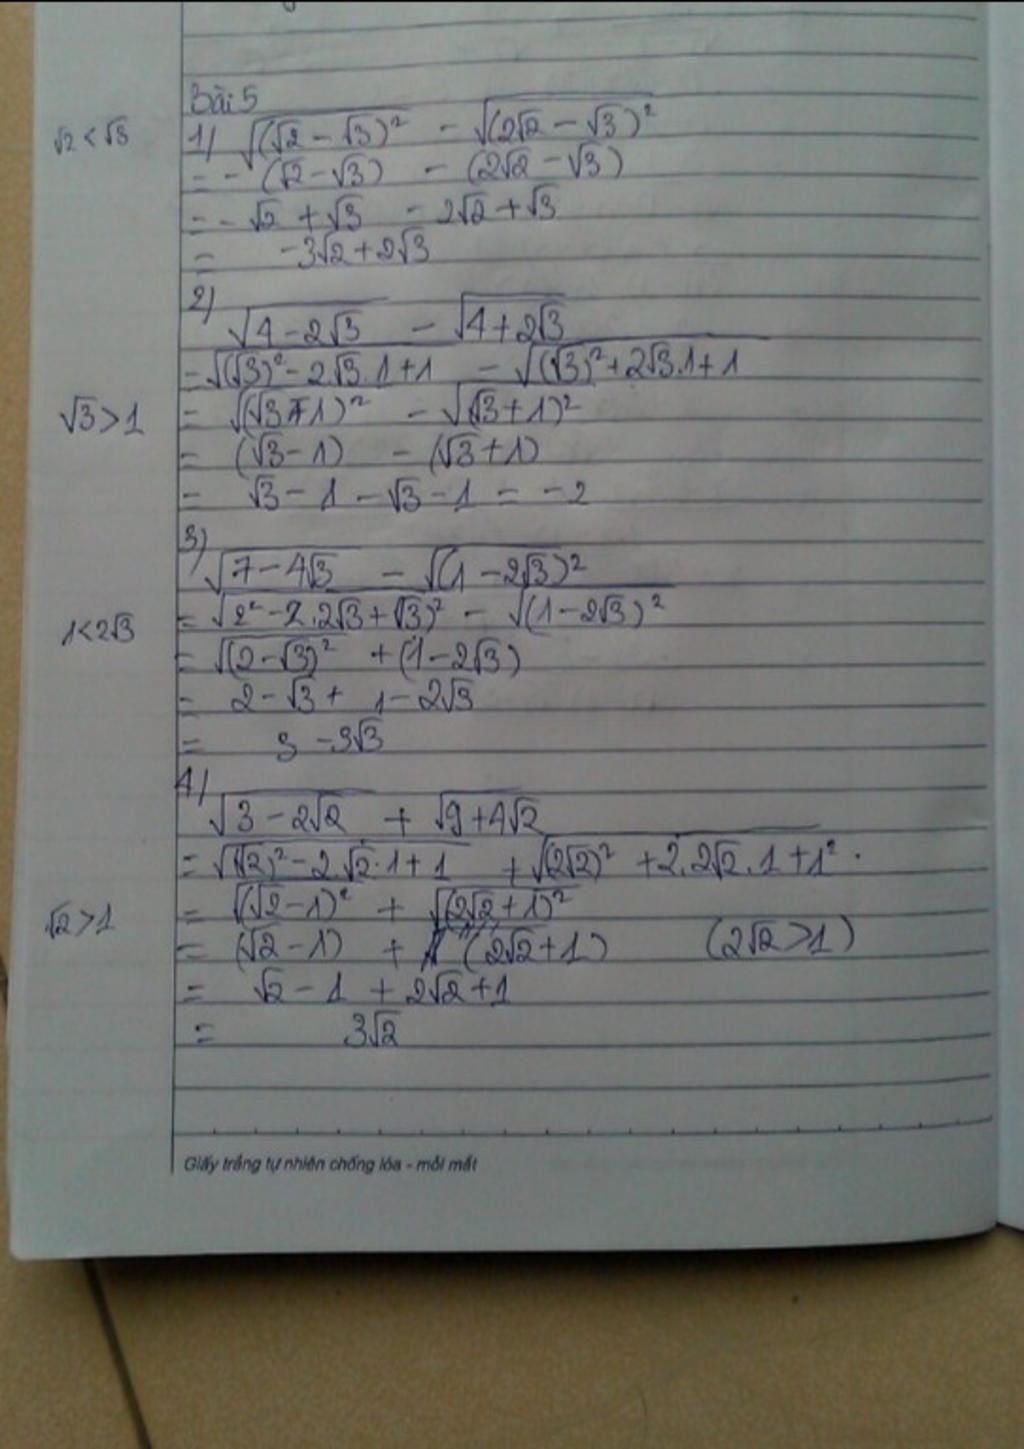 Bài 5
√2 < √3
1) √(√2 - √3)² - √(2√2 - √3)²
= - (√2 - √3) - (2√2 - √3)
= - √2 + √3 - 2√2 + √3
= -3√2 + 2√3
2)
√4 - 2√3 - √4 + 2√3
= √(√3)² - 2.√3.1 + 1 - √(√3)² + 2√3.1 + 1
√3 > 1
= √(√3 - 1)² - √(√3 + 1)²
= (√3 - 1) - (√3 + 1)
= √3 - 1 - √3 - 1 = -2
3)
√7 - 4√3 - √(1 - 2√3)²
= √2² - 2.2√3 + √3)² - √(1 - 2√3)²
1 < 2√3
= √(2 - √3)² + (1 - 2√3)
= 2 - √3 + 1 - 2√3
= 3 - 3√3
4)
√3 - 2√2 + √9 + 4√2
= √(√2)² - 2.√2.1 + 1 + √(2√2)² + 2.2√2.1 + 1² .
√2 > 1
= √(√2 - 1)² + √(2√2 + 1)²
= (√2 - 1) + (2√2 + 1) (2√2 > 1)
= √2 - 1 + 2√2 + 1
= 3√2
Giấy trắng tự nhiên chống lóa - mỏi mắt